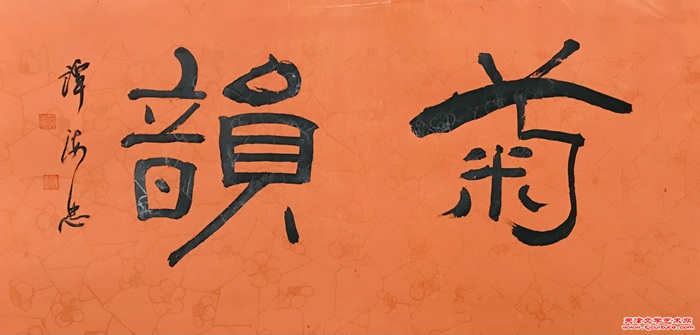 菊韻
譚海忠
天津文学艺术网